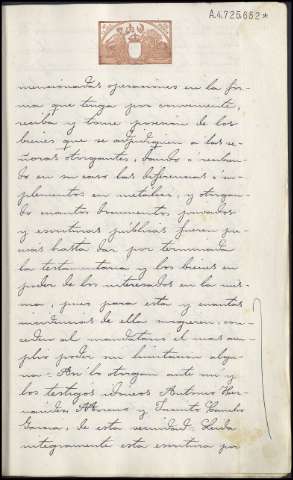 A.4.725.652*
mencionadas operaciones en la for-
ma que tenga por conveniente,
reciba y tome posesion de los
bienes que se adjudiquen a las se-
ñoras otorgantes, dando o recibien-
do en su caso las diferencias o im-
plementos en metalico, y otorgan-
do cuantos documentos privados
y escrituras públicas fueren pre-
cisas hasta dar por terminada
la testamentaria y los bienes en
poder de los interesados en la mis-
ma, pues para esta y cuantas
incidencias de ella surgieren, con-
ceden al mandatario el mas am-
plio poder sin limitacion algu-
na. Asi lo otorgan ante mi y
los testigos idoneos Antonio Her-
nandez y
Garcia, de esta vecindad. Leida
integramente esta escritura por